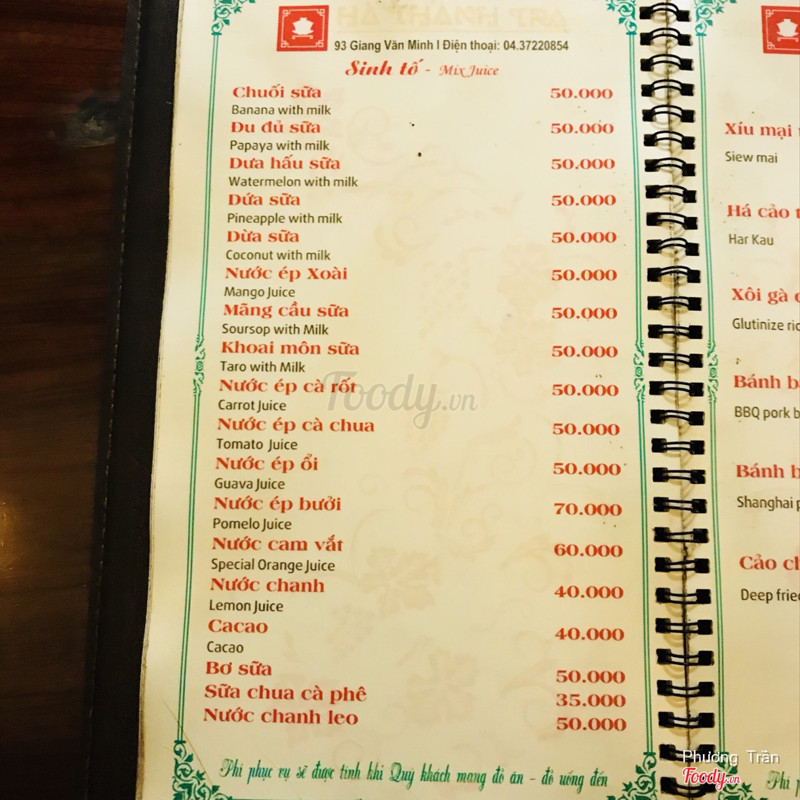 93 Giang Văn Minh I Điện thoại: 04.37220854
Sinh tố - Mix Juice
Chuối sữa 50.000
Banana with milk
Đu đủ sữa 50.000
Papaya with milk
Dưa hấu sữa 50.000
Watermelon with milk
Dứa sữa 50.000
Pineapple with milk
Dừa sữa 50.000
Coconut with milk
Nước ép Xoài 50.000
Mango Juice
Mãng cầu sữa 50.000
Soursop with Milk
Khoai môn sữa 50.000
Taro with Milk
Nước ép cà rốt 50.000
Carrot Juice
Nước ép cà chua 50.000
Tomato Juice
Nước ép ổi 50.000
Guava Juice
Nước ép bưởi 70.000
Pomelo Juice
Nước cam vắt 60.000
Special Orange Juice
Nước chanh 40.000
Lemon Juice
Cacao 40.000
Cacao
Bơ sữa 50.000
Sữa chua cà phê 35.000
Nước chanh leo 50.000
Phí phục vụ sẽ được tính khi Quý khách mang đồ ăn - đồ uống đến
Xíu mại
Siew mai
Há cảo
Har Kau
Xôi gà
Glutinize
Bánh
BBQ pork
Bánh
Shanghai
Cảo
Deep
Phí
Foody.vn
Phương Trần
Foody.vn